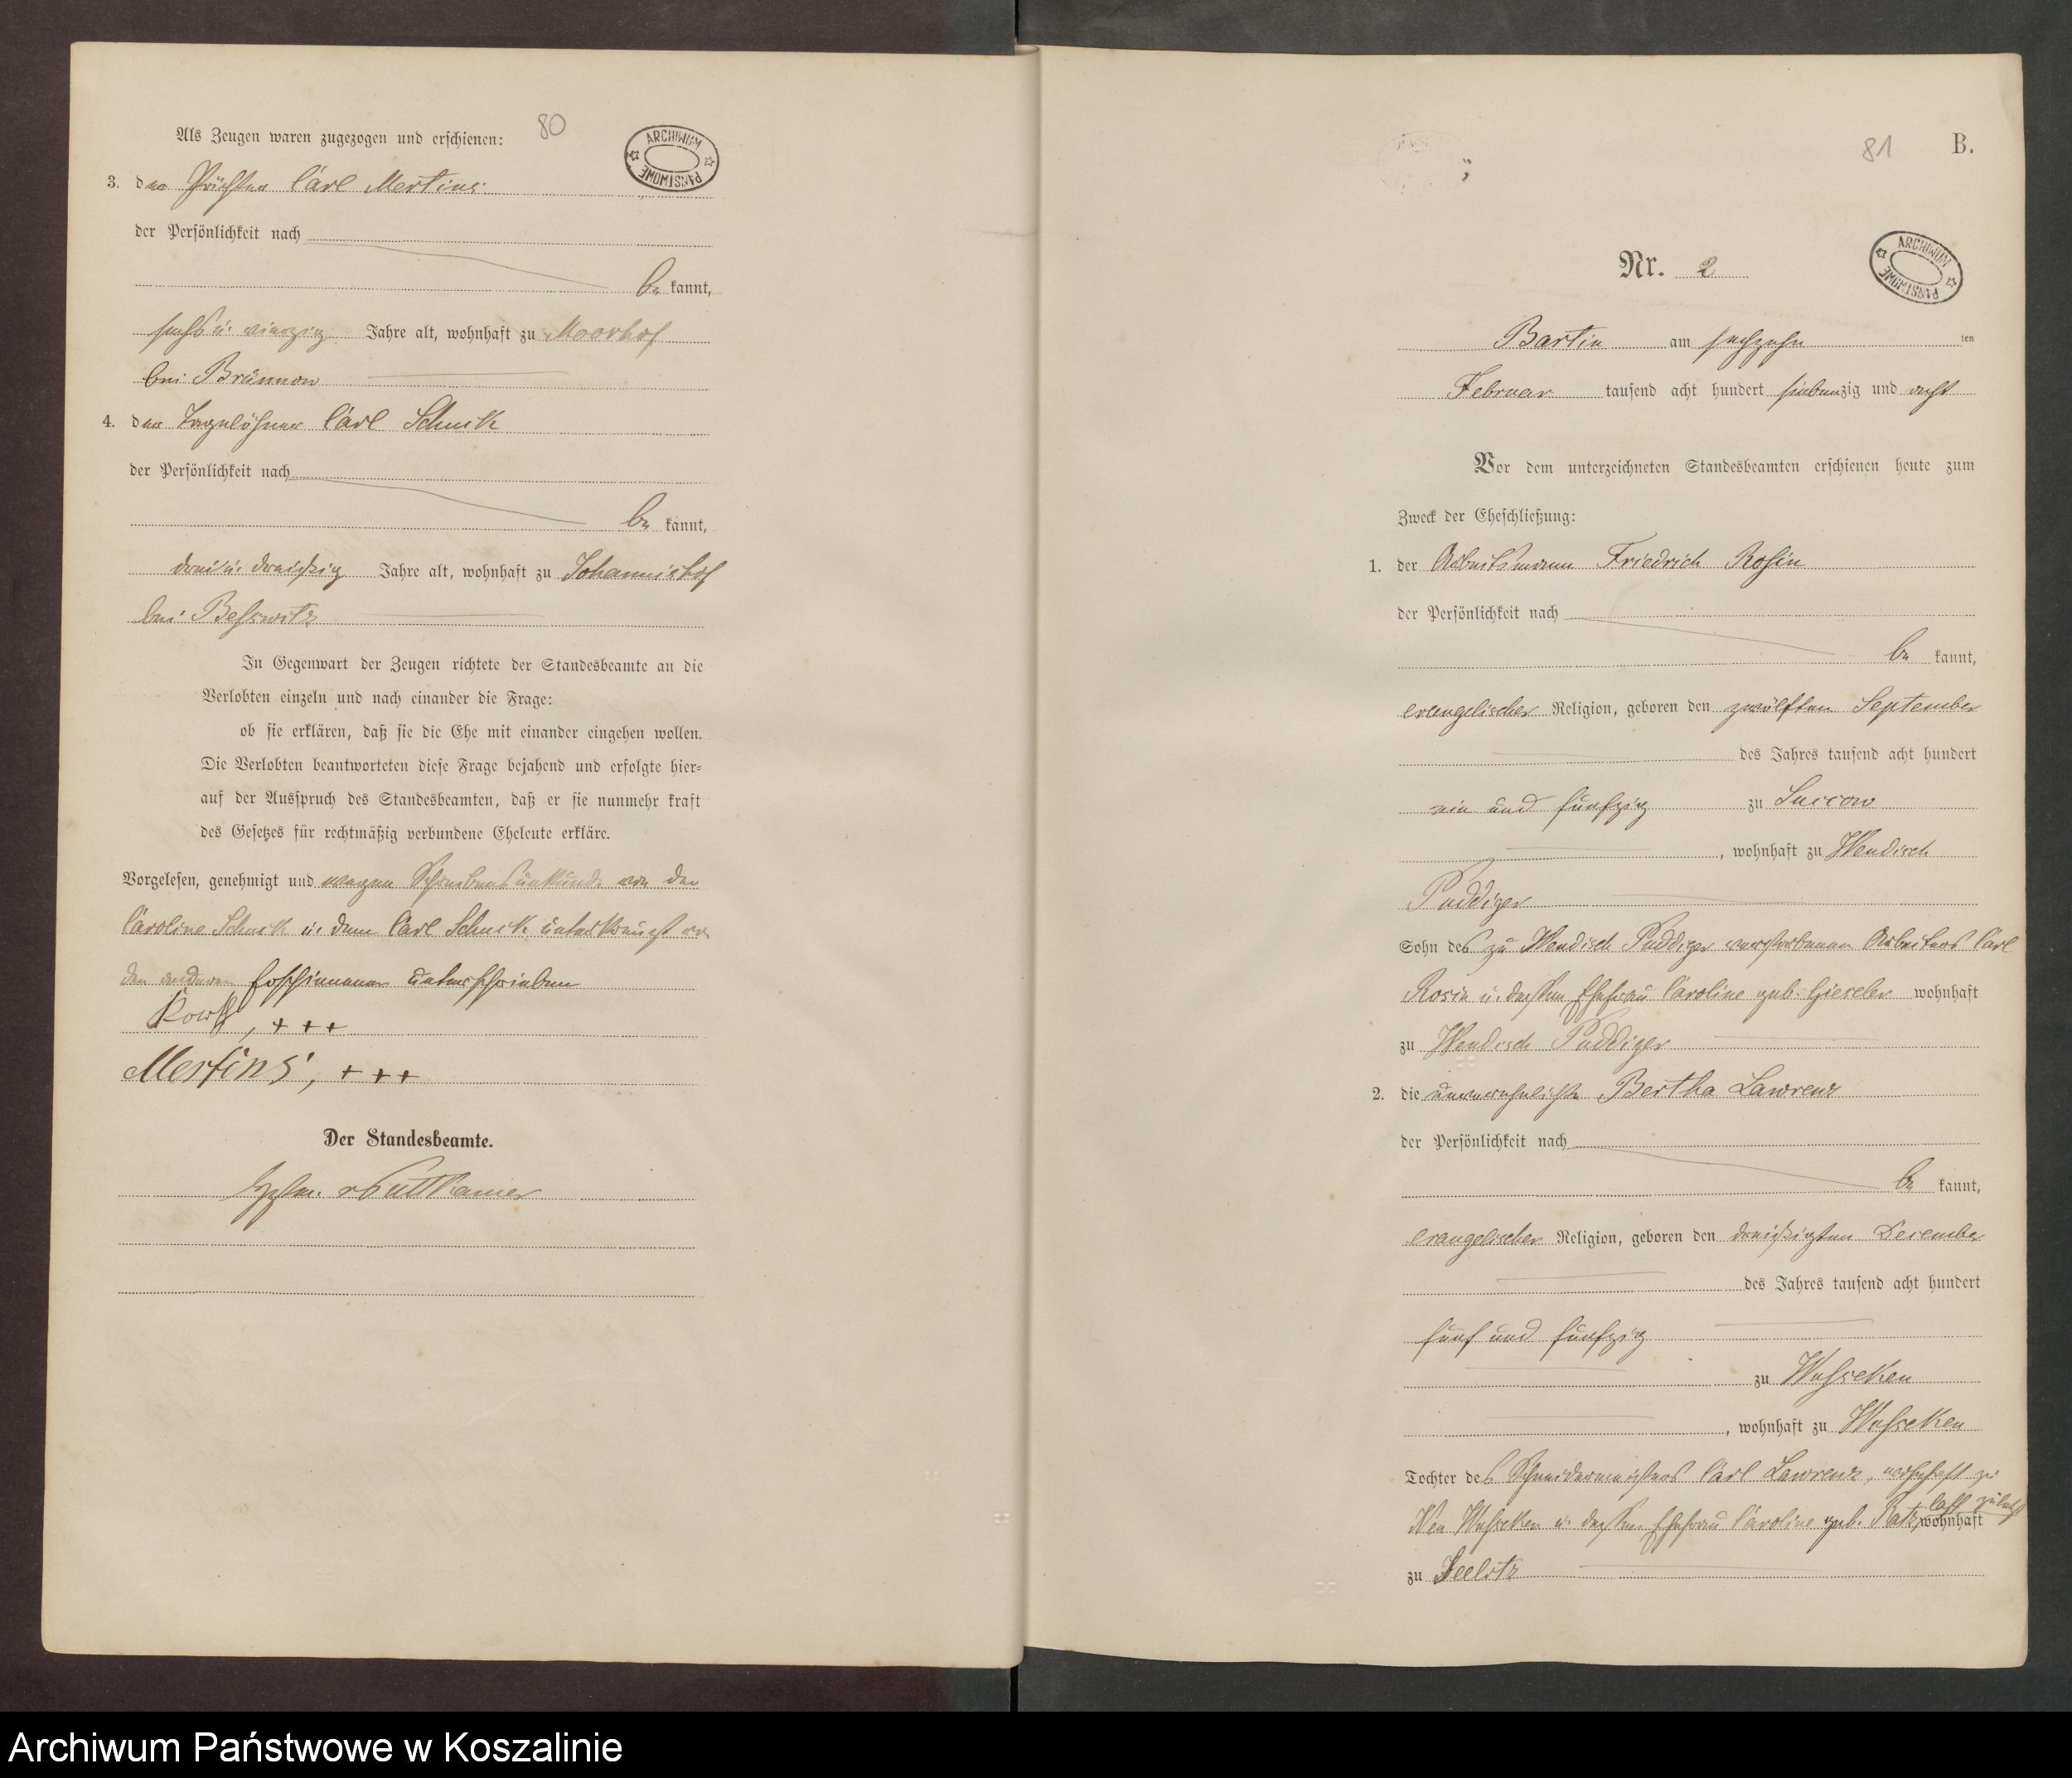 80
ARCHIWUM PAŃSTWOWE
Als Zeugen waren zugezogen und erschienen:
3. der Pächter Carl Mertins
der Persönlichkeit nach
be kannt,
sechs u. vierzig Jahre alt, wohnhaft zu Moorhof
bei Brünnow
4. der Tagelöhner Carl Schuck
der Persönlichkeit nach
be kannt,
drei u. dreißig Jahre alt, wohnhaft zu Johannishof
bei Besswitz
In Gegenwart der Zeugen richtete der Standesbeamte an die
Verlobten einzeln und nach einander die Frage:
ob sie erklären, daß sie die Ehe mit einander eingehen wollen.
Die Verlobten beantworteten diese Frage bejahend und erfolgte hier-
auf der Ausspruch des Standesbeamten, daß er sie nunmehr kraft
des Gesetzes für rechtmäßig verbundene Eheleute erkläre.
Vorgelesen, genehmigt und wegen Schreibensunkunde von der
Caroline Schuck u. dem Carl Schuck unterkreuzt von
den anderen Erschienenen unterschrieben
, +++
Mertins, +++
Der Standesbeamte.
v Puttkamer
81
B.
ARCHIWUM PAŃSTWOWE
Nr. 2
Bartin am sechzehn ten
Februar tausend acht hundert siebenzig und acht
Vor dem unterzeichneten Standesbeamten erschienen heute zum
Zweck der Eheschließung:
1. der Arbeitsmann Friedrich Rosin
der Persönlichkeit nach
be kannt,
evangelischer Religion, geboren den zwölften September
des Jahres tausend acht hundert
ein und fünfzig zu Succow
, wohnhaft zu Wendisch
Puddiger
Sohn des zu Wendisch Puddiger verstorbenen Arbeiters Carl
Rosin u. dessen Ehefrau Caroline geb. Gieseler wohnhaft
zu Wendisch Puddiger
2. die unverehelichte Bertha Lawrenz
der Persönlichkeit nach
be kannt,
evangelischer Religion, geboren den dreißigsten December
des Jahres tausend acht hundert
fünf und fünfzig
zu Wusseken
, wohnhaft zu Wusseken
Tochter des Schneidermeisters Carl Lawrenz, wohnhaft zu
Neu Wusseken u. dessen Ehefrau Caroline geb. Ratz, wohnhaft
zu Seelitz
Archiwum Państwowe w Koszalinie